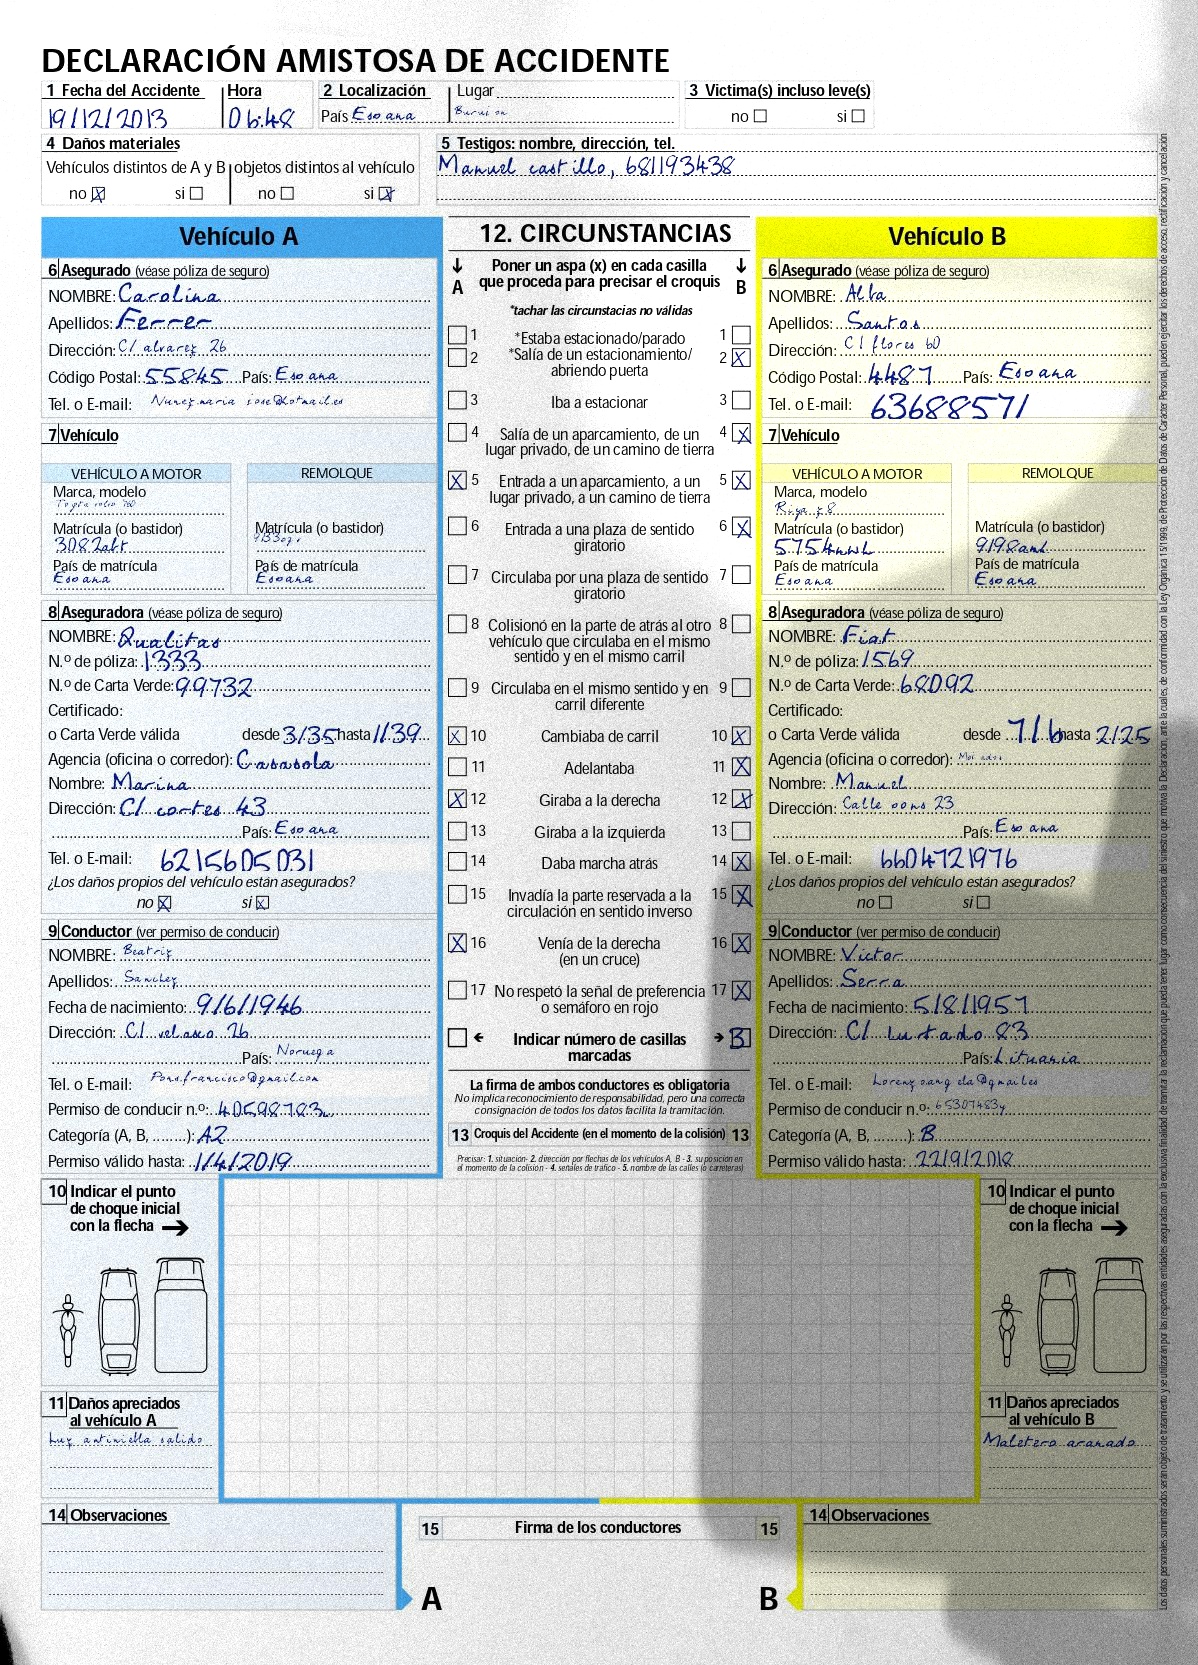 DECLARACIÓN AMISTOSA DE ACCIDENTE
1 Fecha del Accidente Hora 2 Localización Lugar 3 Victima(s) incluso leve(s)
19/12/2013 06:48 País Espana no si
4 Daños materiales 5 Testigos: nombre, dirección, tel.
Vehículos distintos de A y B objetos distintos al vehículo Manuel castillo, 681193438
no X si no si X
Vehículo A
6 Asegurado (véase póliza de seguro)
NOMBRE: Carolina
Apellidos: Ferrer
Dirección: C/ alvarez 26
Código Postal: 55845 País: Espana
Tel. o E-mail: Nunez.maria jose@hotmail.es
7 Vehículo
VEHÍCULO A MOTOR REMOLQUE
Marca, modelo
Matrícula (o bastidor) Matrícula (o bastidor)
3082abt
País de matrícula País de matrícula
Espana Espana
8 Aseguradora (véase póliza de seguro)
NOMBRE: Qualitas
N.º de póliza: 1333
N.º de Carta Verde: 99732
Certificado:
o Carta Verde válida desde 3/35 hasta 1/39
Agencia (oficina o corredor): Casasola
Nombre: Marina
Dirección: C/ cortes 43
País: Espana
Tel. o E-mail: 6215605031
¿Los daños propios del vehículo están asegurados?
no X si X
9 Conductor (ver permiso de conducir)
NOMBRE: Beatriz
Apellidos: Sanchez
Fecha de nacimiento: 9/6/1946
Dirección: C/ velasco 26
País: Noruega
Tel. o E-mail Pons.francisco@gmail.com
Permiso de conducir n.º: 40598783
Categoría (A, B, ........): A2
Permiso válido hasta: 1/4/2019
12. CIRCUNSTANCIAS
A Poner un aspa (x) en cada casilla que proceda para precisar el croquis B
*tachar las circunstacias no válidas
1 *Estaba estacionado/parado 1
2 *Salía de un estacionamiento/ abriendo puerta 2 X
3 Iba a estacionar 3
4 Salía de un aparcamiento, de un lugar privado, de un camino de tierra 4 X
X 5 Entrada a un aparcamiento, a un lugar privado, a un camino de tierra 5 X
6 Entrada a una plaza de sentido giratorio 6 X
7 Circulaba por una plaza de sentido giratorio 7
8 Colisionó en la parte de atrás al otro vehículo que circulaba en el mismo sentido y en el mismo carril 8
9 Circulaba en el mismo sentido y en carril diferente 9
X 10 Cambiaba de carril 10 X
11 Adelantaba 11 X
X 12 Giraba a la derecha 12 X
13 Giraba a la izquierda 13
14 Daba marcha atrás 14 X
15 Invadía la parte reservada a la circulación en sentido inverso 15 X
X 16 Venía de la derecha (en un cruce) 16 X
17 No respetó la señal de preferencia o semáforo en rojo 17 X
Indicar número de casillas marcadas 3
La firma de ambos conductores es obligatoria
No implica reconocimiento de responsabilidad, pero una correcta
consignación de todos los datos facilita la tramitación.
13 Croquis del Accidente (en el momento de la colisión) 13
Precisar: 1. situación- 2. dirección por flechas de los vehículos A, B - 3. su posición en
el momento de la colisión - 4. señales de tráfico - 5. nombre de las calles (o carreteras)
Vehículo B
6 Asegurado (véase póliza de seguro)
NOMBRE: Alba
Apellidos: Santos
Dirección: C/ flores 60
Código Postal: 4487 País: Espana
Tel. o E-mail: 63688571
7 Vehículo
VEHÍCULO A MOTOR REMOLQUE
Marca, modelo
Matrícula (o bastidor) Matrícula (o bastidor)
País de matrícula País de matrícula
Espana Espana
8 Aseguradora (véase póliza de seguro)
NOMBRE: Fiat
N.º de póliza: 1569
N.º de Carta Verde: 68092
Certificado:
o Carta Verde válida desde 7/6 hasta 2/25
Agencia (oficina o corredor):
Nombre: Manuel
Dirección: Calle pons 23
País: Espana
Tel. o E-mail: 6604721976
¿Los daños propios del vehículo están asegurados?
no si
9 Conductor (ver permiso de conducir)
NOMBRE: Victor
Apellidos: Serra
Fecha de nacimiento: 5/8/1957
Dirección: C/ hurtado 83
País: Lituania
Tel. o E-mail
Permiso de conducir n.º: 65307483y
Categoría (A, B, ........): B
Permiso válido hasta: 22/9/2018
10 Indicar el punto de choque inicial con la flecha
11 Daños apreciados al vehículo A
Luz antiniebla salido
14 Observaciones
10 Indicar el punto de choque inicial con la flecha
11 Daños apreciados al vehículo B
Maletero aranado
14 Observaciones
15 Firma de los conductores 15
A B